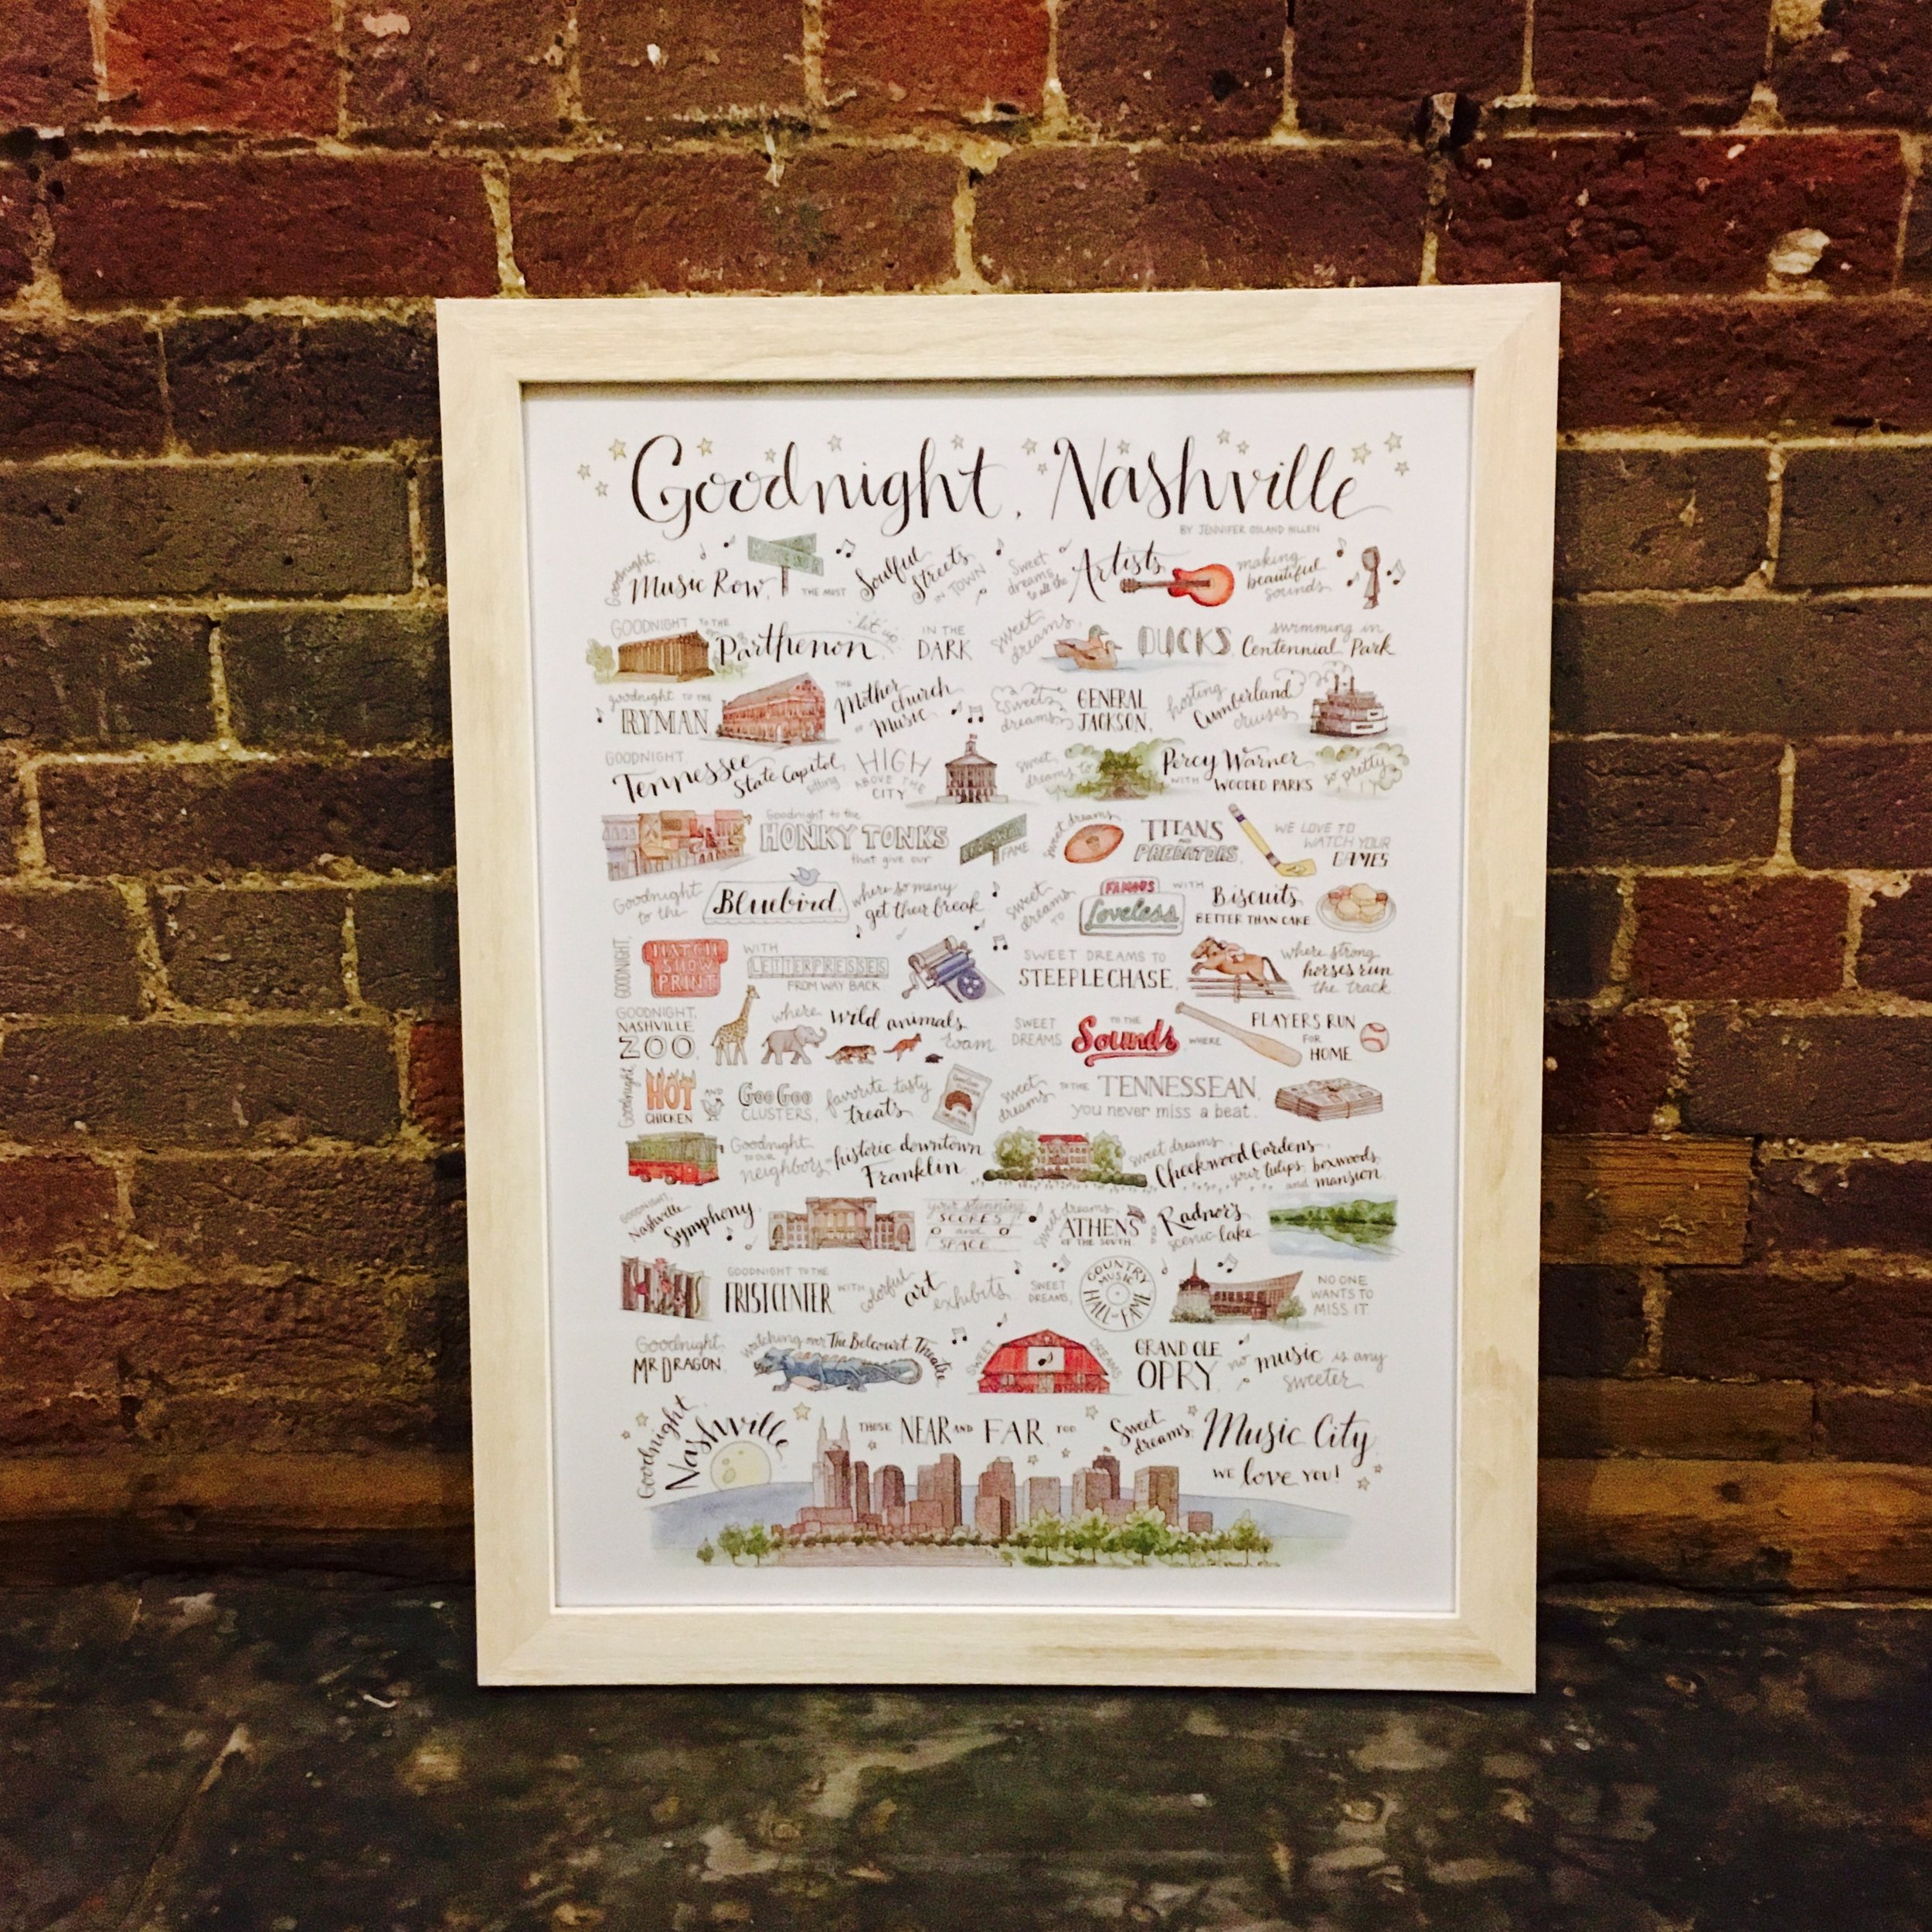 Goodnight, Nashville
BY JENNIFER OSLAND HILLEN
Goodnight, Music Row, THE MOST Soulful Streets IN TOWN Sweet dreams to all the Artists making beautiful sounds
GOODNIGHT TO THE Parthenon, "lit" up IN THE DARK sweet dreams, DUCKS, swimming in Centennial Park
goodnight TO THE RYMAN, THE Mother church OF Music Sweet dreams, GENERAL JACKSON, hosting Cumberland cruises
GOODNIGHT, Tennessee State Capitol, sitting HIGH ABOVE THE CITY sweet dreams to Percy Warner WITH WOODED PARKS so pretty
Goodnight to the HONKY TONKS that give our BROADWAY FAME sweet dreams TITANS AND PREDATORS, WE LOVE TO WATCH YOUR GAMES
Goodnight to the Bluebird, where so many get their break sweet dreams, TO FAMOUS Loveless WITH Biscuits BETTER THAN CAKE
GOODNIGHT, HATCH SHOW PRINT WITH LETTERPRESSES FROM WAY BACK SWEET DREAMS TO STEEPLECHASE, where strong horses run the track
GOODNIGHT, NASHVILLE ZOO, where wild animals roam SWEET DREAMS TO THE Sounds WHERE PLAYERS RUN FOR HOME
Goodnight, HOT CHICKEN AND Goo Goo CLUSTERS, favorite tasty treats Goo Goo sweet dreams TO THE TENNESSEAN, you never miss a beat.
Goodnight, TO OUR neighbors in historic downtown Franklin sweet dreams, Cheekwood Gardens, your tulips, boxwoods, and mansion.
GOODNIGHT, Nashville Symphony, your stunning SCORES and SPACE sweet dreams, ATHENS OF THE SOUTH, AND Radnor's scenic lake
GOODNIGHT TO THE FRIST CENTER WITH colorful art exhibits SWEET DREAMS, COUNTRY MUSIC HALL OF FAME NO ONE WANTS TO MISS IT
Goodnight, MR DRAGON, watching over The Belcourt Theatre SWEET DREAMS GRAND OLE OPRY, no music is any sweeter
Goodnight Nashville THOSE NEAR AND FAR TOO Sweet dreams, Music City
WE love YOU!